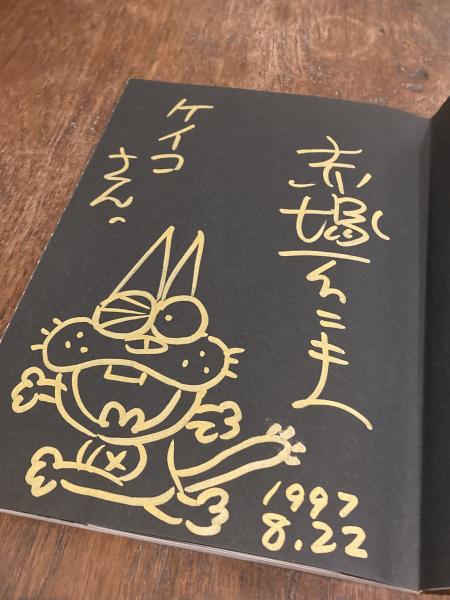 赤塚不二夫
ケイコ
さんへ
1997
8.22